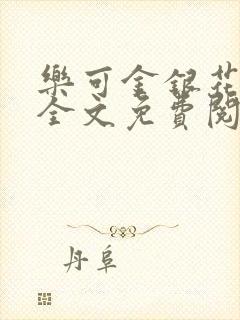 樂可金銀花
全文免費閱
丹阜